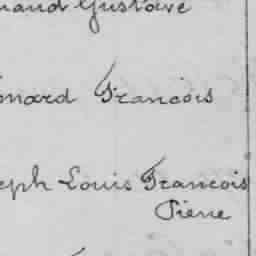 mand Gustave
onard Francois
eph Louis Francois
Pierre